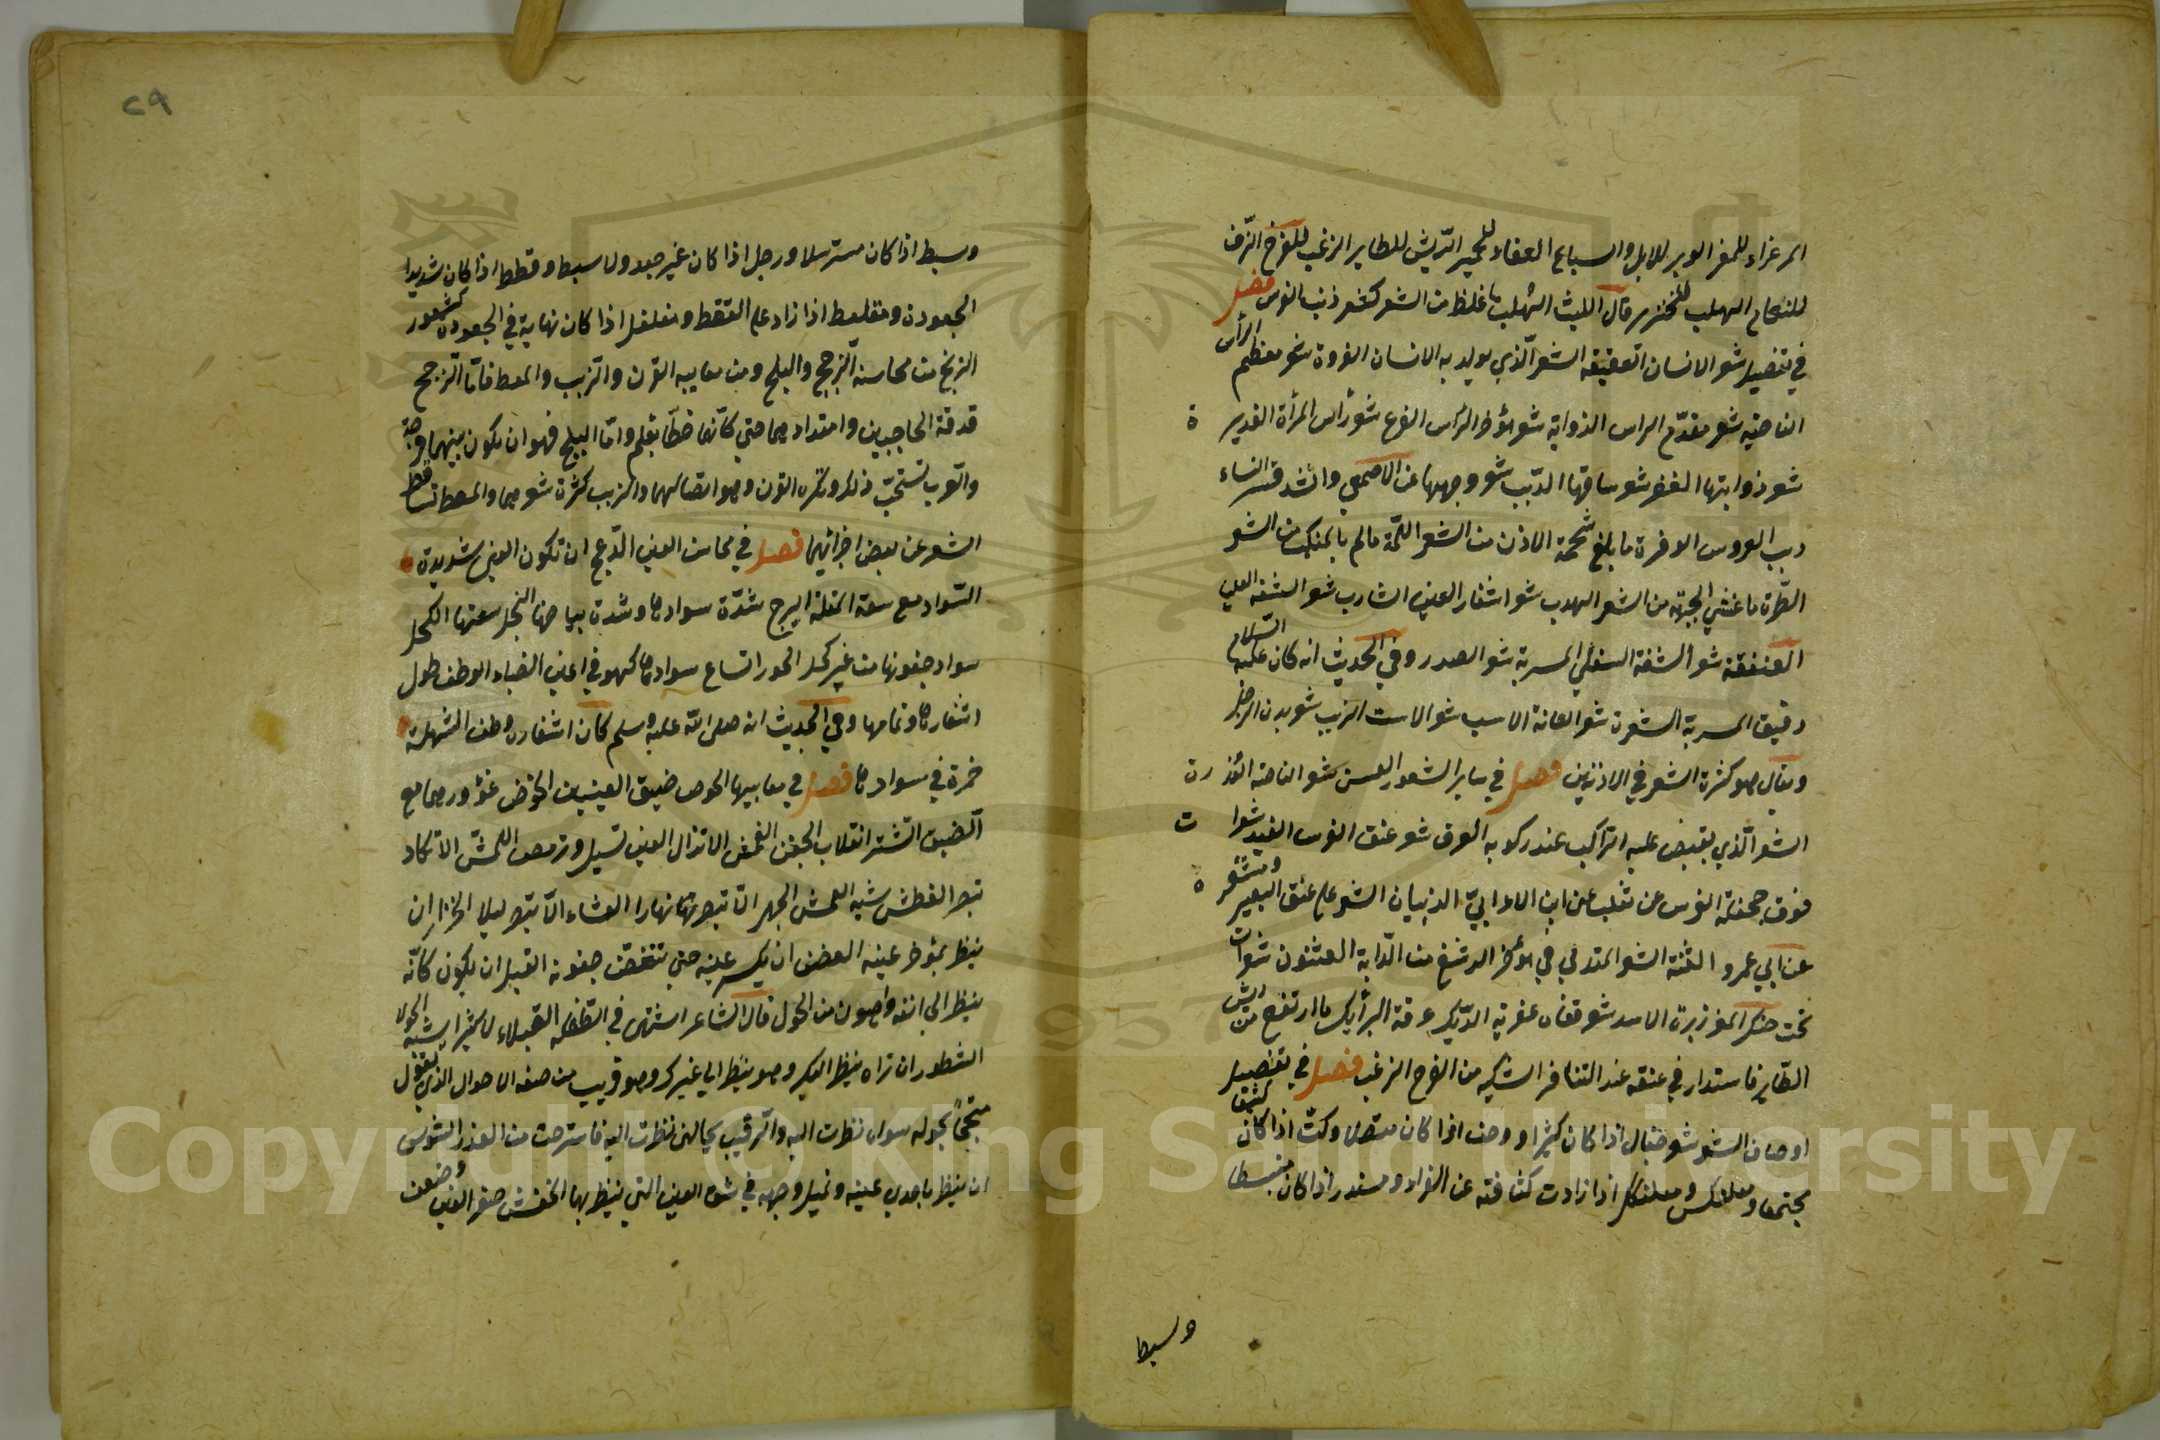 المرعزاء للمعز الوبر للابل والسباع العفاء للحمير الريش للطاير الزغب للفرخ الزف
للنعام الهلب للخنزير قال الليث الهلب ما غلظ من الشعر كشعر ذنب الفرس فصل
في تفصيل شعر الانسان العقيقة الشعر الذي يولد به الانسان الفروة شعر معظم الرأس
الناصية شعر مقدّم الراس الذوابة شعر مؤخر الراس الفرع شعر رأس المرأة الغديرة
شعر ذوابتها الغفر شعر ساقها الدبب شعر وجهها عن الاصمعي وانشد قشر النساء
دبب العروس الوفرة ما بلغ شحمة الاذن من الشعر اللمّة ما لم بالمنكب من الشعر
الطرة ما غشي الجبهة من الشعر الهدب شعر اشفار العين الشارب شعر الشفة العليا
العنفقة شعر الشفة السفلي المسربة شعر الصدر وفي الحديث انه كان عليه السلام
دقيق المسربة الشعرة شعر العانة الاسب شعر الاست الزبب شعر بدن الرجل
ويقال هو كثرة الشعر في الاذنين فصل في ساير الشعور العسن شعر الناصية العذرة
الشعر الذي يقبض عليه الراكب عند ركوبه العرف شعر عنق الفرس الفيد شعرات
فوق جحفلة الفرس عن ثعلب عن ابن الاعرابي الذنبان الشعر علي عنق البعير ومشفره
عن ابي عمرو الثنّة الشعر المتدلي في مؤخر الرسغ من الدّابة العثنون شعرات
تحت حنك المعز زبرة الاسد شعر قفاه عفرية الديك عرفه البرأيل ما ارتفع من ريش
الطاير فاستدار في عنقه عند التنافر الشكير من الفرخ الزغب فصل في تفصيل
اوصاف الشعر شعر جفال اذا كان كثيرا ووحف اذا كان متصلا وكث اذا كان كثيفا
مجتمعا ومعلنكس ومعلنكك اذا زادت كثافته عن الفراء ومسندر اذا كان منبسطا
وسبط
٢٩
وسبط اذا كان مسترسلا ورجل اذا كان غير جعد ولا سبط وقطط اذا كان شديد
الجعودة ومقلعط اذا زاد علي القطط ومفلفل اذا كان نهاية في الجعودة كشعور
الزنج من محاسنه الزجج والبلج ومن معايبه القرن والزبب والمعط فامّا الزجج
فدقة الحاجبين وامتدادهما حتي كأنهما خطّا بقلم وامّا البلج فهو ان يكون بينهما فرجة
والعرب تستحبّ ذلك وتكره القرن وهو اتصالهما والزبب كثرة شعرهما والمعط تساقط
الشعر عن بعض اجزائهما فصل في محاسن العين الدّعج ان تكون العين شديدة
السّواد مع سعة المقلة البرج شدّة سوادها وشدة بياضها النجل سعتها الكحل
سواد جفونها من غير كحل الحور اتساع سوادها كما هو في اعين الظباء الوطف طول
اشفارها وتمامها وفي الحديث انه صلى الله عليه وسلم كان اشفاره وطف الشهلة
حمرة في سوادها فصل في معايبها الحوص ضيق العينين الخوص غؤورهما مع
الضيق الشتر انقلاب الجفن العمش الا تزال العين تسيل وترمص الكمش الا تكاد
تبصر الغطش شبه العمش الجهر الّا تبصر نهارا العشاء الّا تبصر ليلا الخزر ان
ينظر بمؤخر عينه الغضن ان يكسر عينه حتي تتغضّن جفونه القبل ان يكون كأنّه
ينظر الى انفه واهون من الحول قال الشاعر اشتهى في الطفلة القبلاء لا كثيرا يشبه الحولا
الشطور ان تراه ينظر اليك وهو ينظر الي غيرك وهو قريب من صفة الاحول الذي يقول
متبجحًا بحوله سواه نظرت اليه والرقيب يخالني نظرت اليه فاسترحت من العذر الشوس
ان ينظر باحدي عينيه ويميل وجهه في شق العين التي ينظر بها الخفش صغر العين وضعف